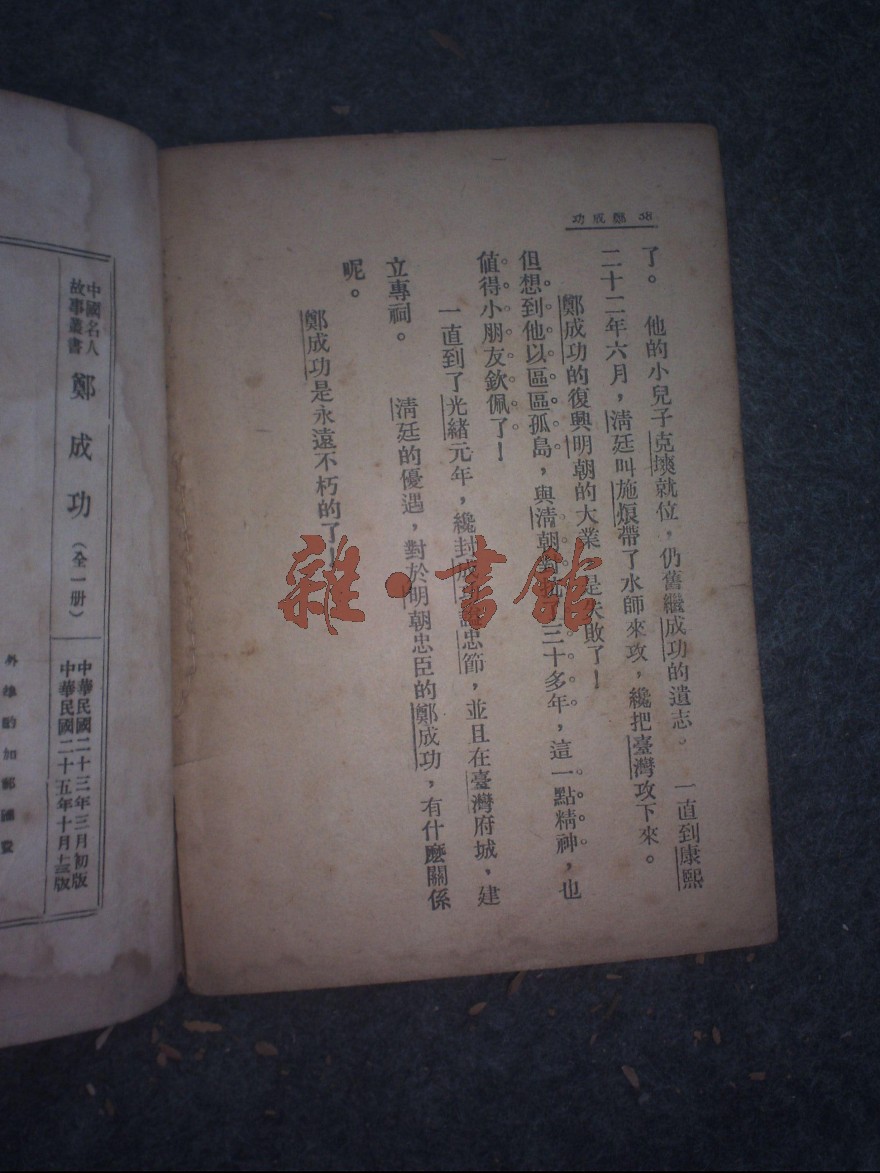 38 鄭成功
了。他的小兒子克塽就位，仍舊繼成功的遺志。一直到康熙
二十二年六月，清廷叫施烺帶了水師來攻，纔把臺灣攻下來。
鄭成功的復興明朝的大業 是失敗了！
但想到他以區區孤島，與清朝對 三十多年，這一點精神，也
值得小朋友欽佩了！
一直到了光緒元年，纔封成 忠節，並且在臺灣府城，建
立專祠。清廷的優遇，對於明朝忠臣的鄭成功，有什麼關係
呢。
鄭成功是永遠不朽的了！
雜·書館
中國名人
故事叢書
鄭成功（全一册）
中華民國二十三年三月初版
中華民國二十五年十月三版
外埠酌加郵匯費